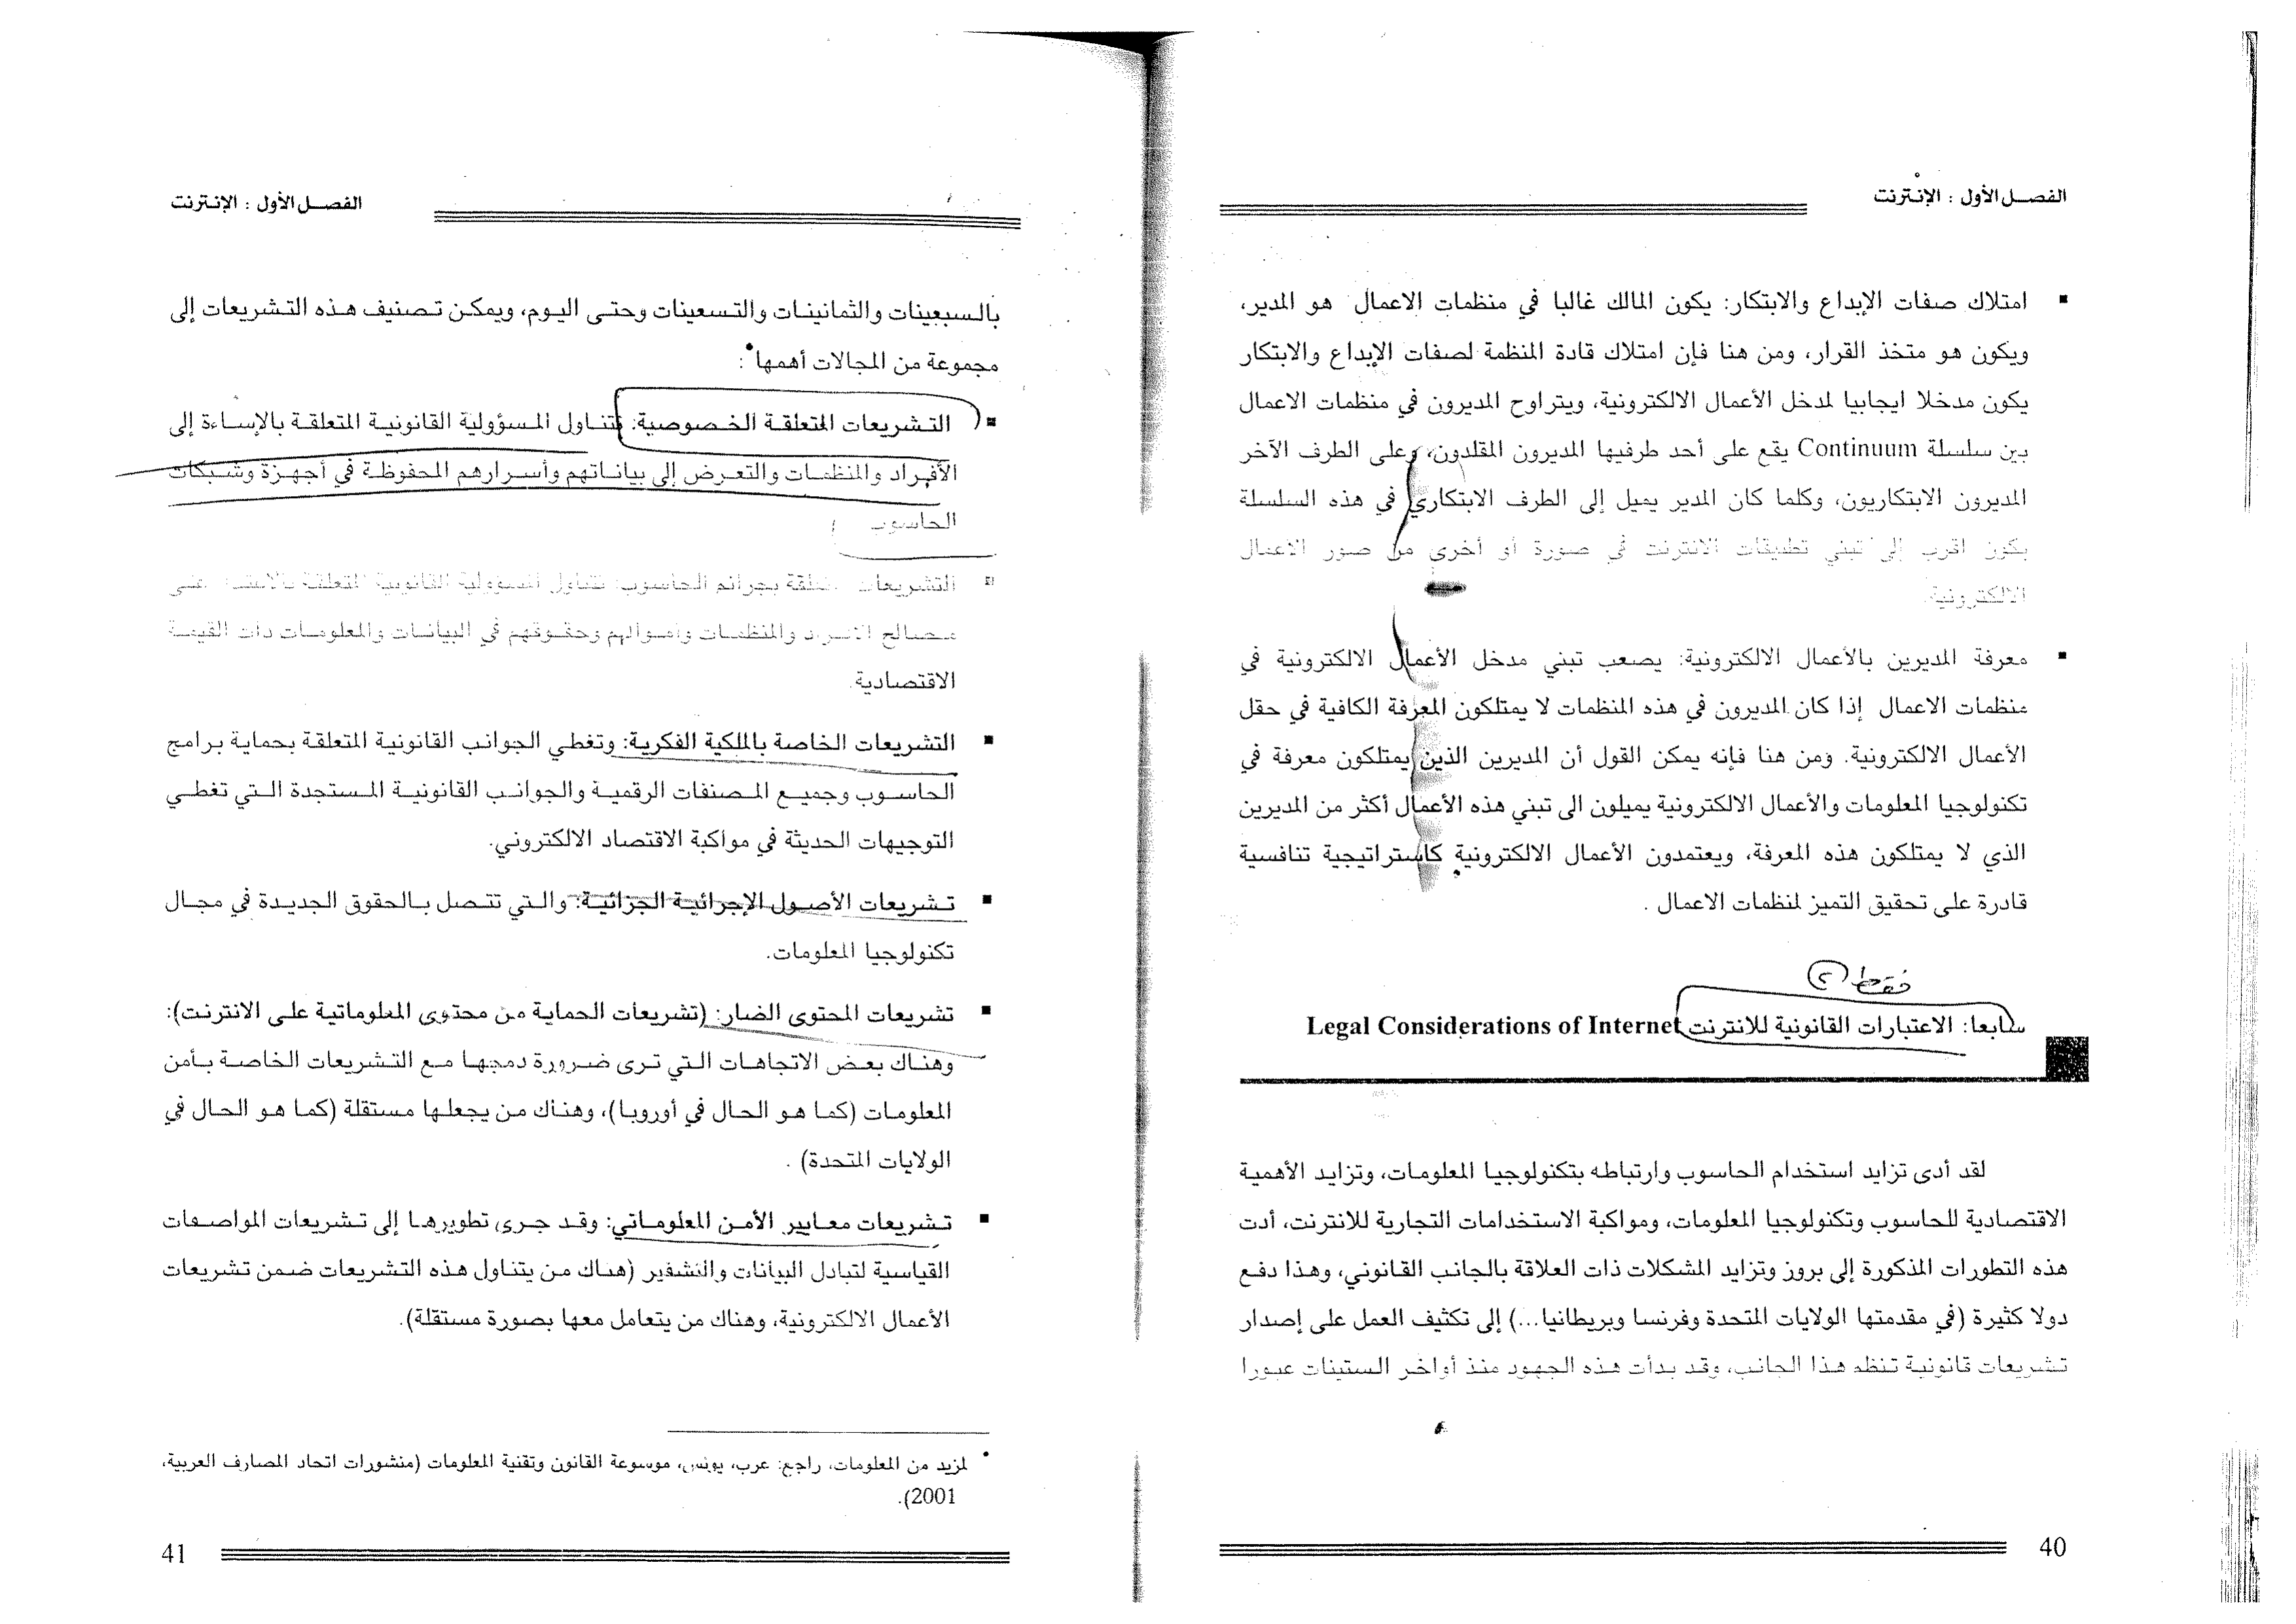 الفصل الأول : الإنترنت
▪ امتلاك صفات الإبداع والابتكار: يكون المالك غالبا في منظمات الاعمال هو المدير،
ويكون هو متخذ القرار، ومن هنا فإن امتلاك قادة المنظمة لصفات الإبداع والابتكار
يكون مدخلا ايجابيا لدخل الأعمال الالكترونية، ويتراوح المديرون في منظمات الاعمال
بين سلسلة Continuum يقع على أحد طرفيها المديرون المقلدون، وعلى الطرف الآخر
المديرون الابتكاريون، وكلما كان المدير يميل إلى الطرف الابتكاري في هذه السلسلة
يكون اقرب إلى تبني تطبيقات الانترنت في صورة أو أخرى من صور الاعمال
الالكترونية.
▪ معرفة المديرين بالأعمال الالكترونية: يصعب تبني مدخل الأعمال الالكترونية في
منظمات الاعمال إذا كان المديرون في هذه المنظمات لا يمتلكون المعرفة الكافية في حقل
الأعمال الالكترونية. ومن هنا فإنه يمكن القول أن المديرين الذين يمتلكون معرفة في
تكنولوجيا المعلومات والأعمال الالكترونية يميلون الى تبني هذه الأعمال أكثر من المديرين
الذي لا يمتلكون هذه المعرفة، ويعتمدون الأعمال الالكترونية كاستراتيجية تنافسية
قادرة على تحقيق التميز لمنظمات الاعمال .
فقط (٢)
سابعا: الاعتبارات القانونية للانترنت Legal Considerations of Internet
لقد أدى تزايد استخدام الحاسوب وارتباطه بتكنولوجيا المعلومات، وتزايد الأهمية
الاقتصادية للحاسوب وتكنولوجيا المعلومات، ومواكبة الاستخدامات التجارية للانترنت، أدت
هذه التطورات المذكورة إلى بروز وتزايد المشكلات ذات العلاقة بالجانب القانوني، وهذا دفع
دولا كثيرة (في مقدمتها الولايات المتحدة وفرنسا وبريطانيا...) إلى تكثيف العمل على إصدار
تشريعات قانونية تنظم هذا الجانب، وقد بدأت هذه الجهود منذ أواخر الستينات عبورا
40
الفصل الأول : الإنترنت
بالسبعينات والثمانينات والتسعينات وحتى اليوم، ويمكن تصنيف هذه التشريعات إلى
مجموعة من المجالات أهمها•:
▪ التشريعات المتعلقة الخصوصية: تتناول المسؤولية القانونية المتعلقة بالإساءة إلى
الأفراد والمنظمات والتعرض إلى بياناتهم وأسرارهم المحفوظة في أجهزة وشبكات
الحاسوب
▪ التشريعات المتعلقة بجرائم الحاسوب: تتناول المسؤولية القانونية المتعلقة بالاعتداء على
مصالح الافراد والمنظمات وأموالهم وحقوقهم في البيانات والمعلومات ذات القيمة
الاقتصادية.
▪ التشريعات الخاصة بالملكية الفكرية: وتغطي الجوانب القانونية المتعلقة بحماية برامج
الحاسوب وجميع المصنفات الرقمية والجوانب القانونية المستجدة التي تغطي
التوجيهات الحديثة في مواكبة الاقتصاد الالكتروني.
▪ تشريعات الأصول الإجرائية الجزائية: والتي تتصل بالحقوق الجديدة في مجال
تكنولوجيا المعلومات.
▪ تشريعات المحتوى الضار: (تشريعات الحماية من محتوى المعلوماتية على الانترنت):
وهناك بعض الاتجاهات التي ترى ضرورة دمجها مع التشريعات الخاصة بأمن
المعلومات (كما هو الحال في أوروبا)، وهناك من يجعلها مستقلة (كما هو الحال في
الولايات المتحدة) .
▪ تشريعات معايير الأمن المعلوماتي: وقد جرى تطويرها إلى تشريعات المواصفات
القياسية لتبادل البيانات والتشفير (هناك من يتناول هذه التشريعات ضمن تشريعات
الأعمال الالكترونية، وهناك من يتعامل معها بصورة مستقلة).
• لمزيد من المعلومات، راجع: عرب، يونس، موسوعة القانون وتقنية المعلومات (منشورات اتحاد المصارف العربية،
2001).
41